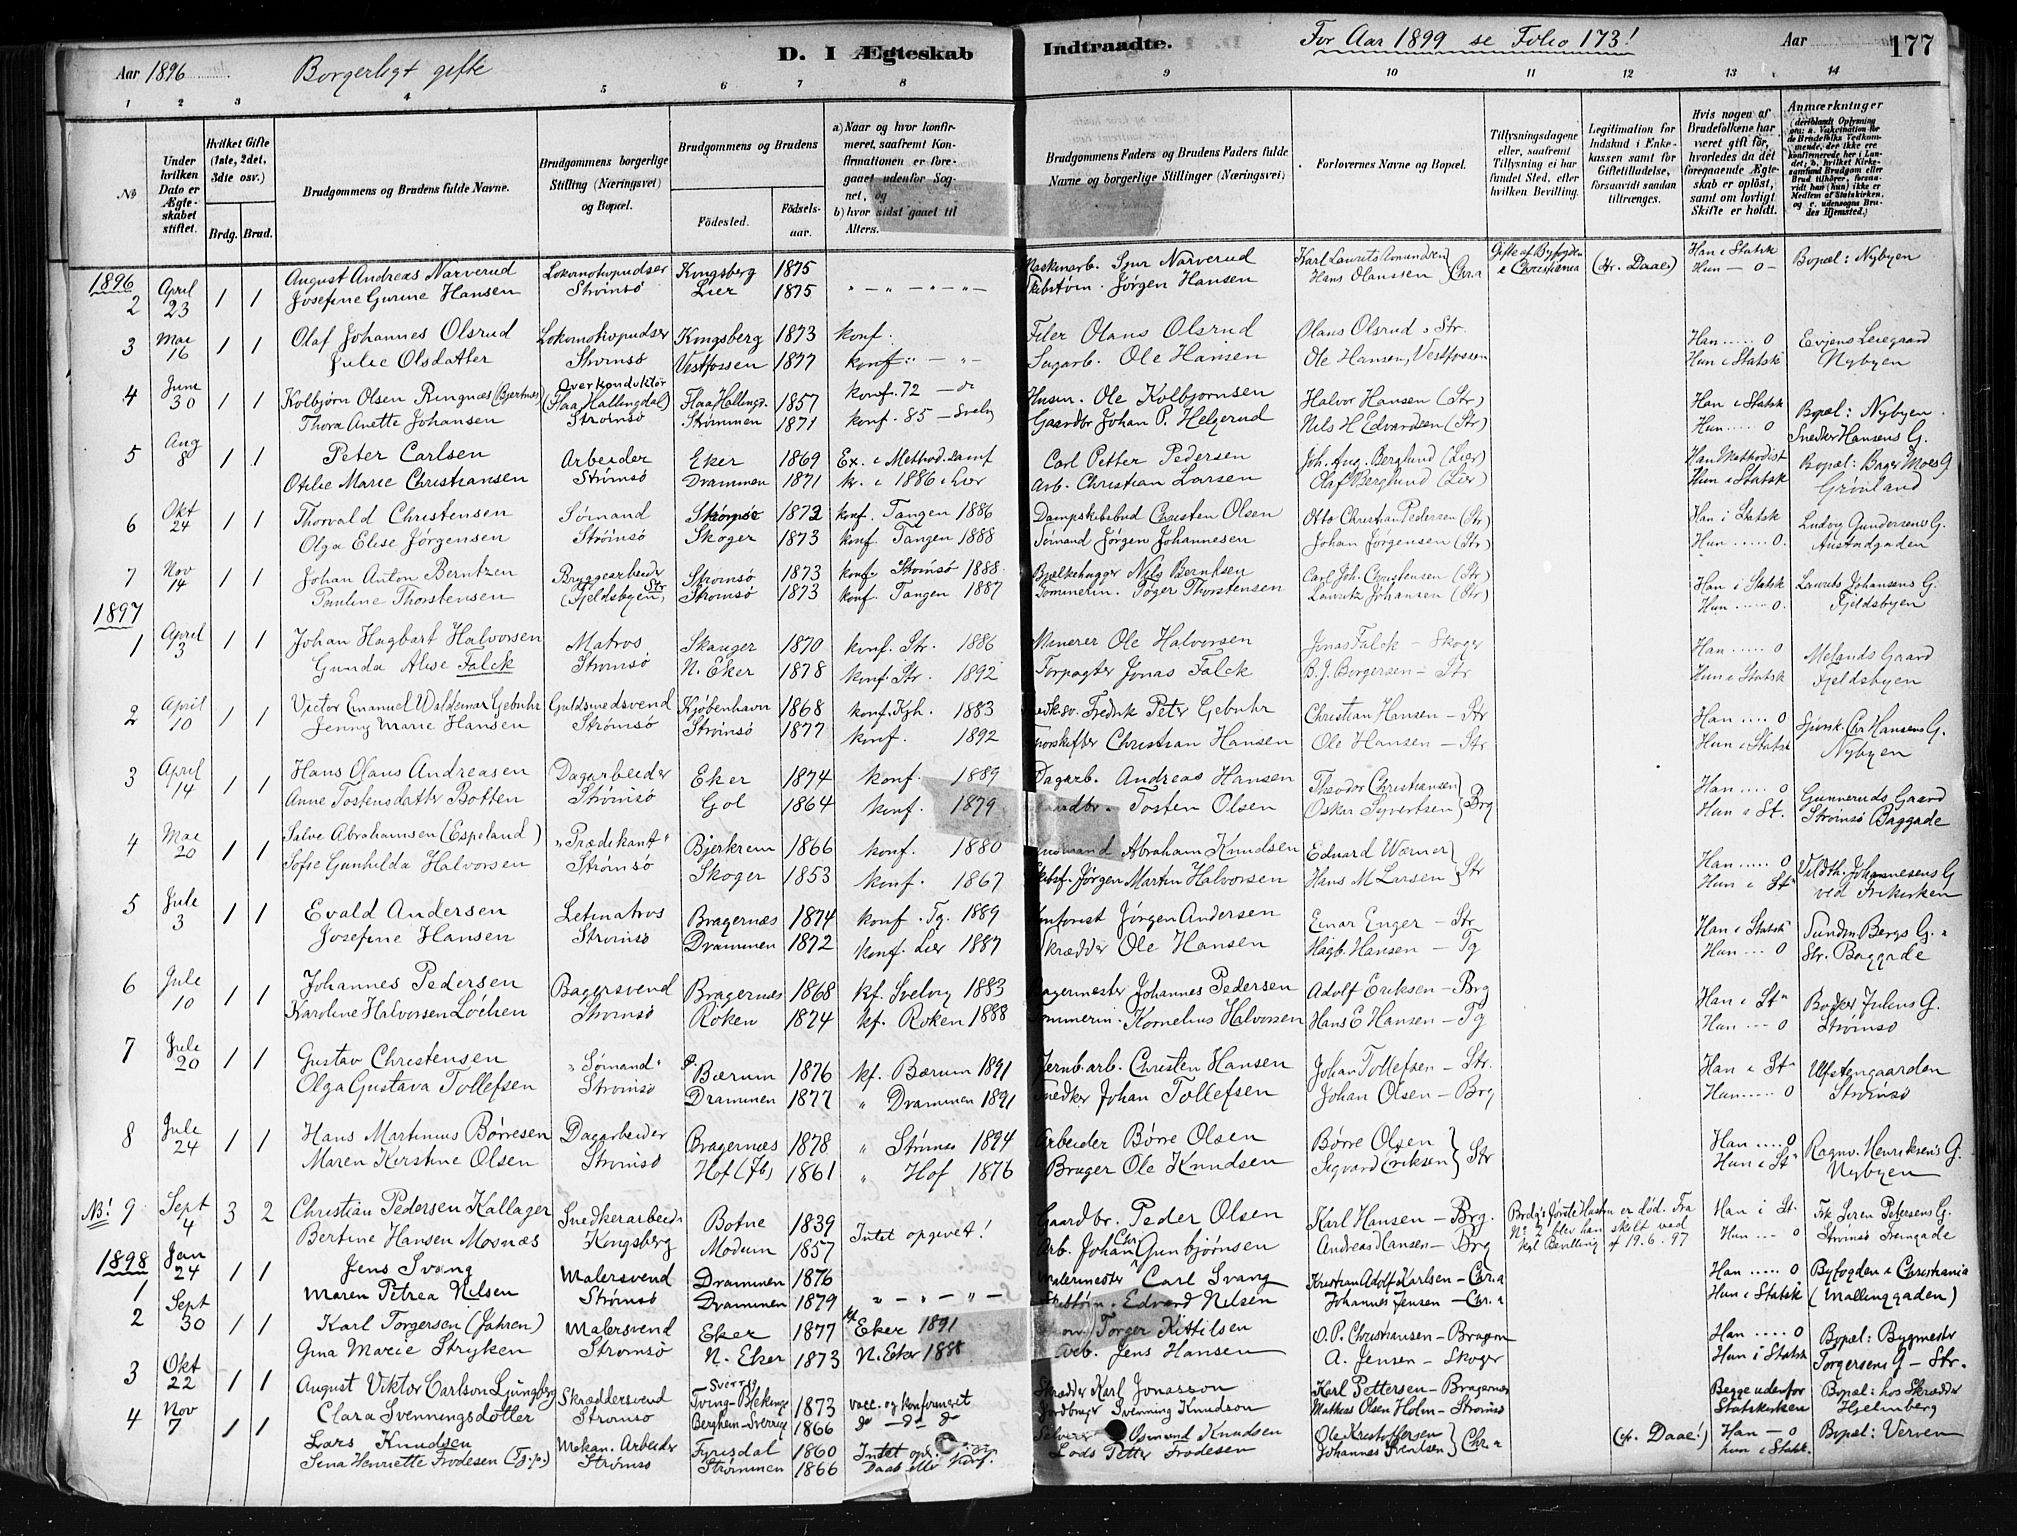 D. I Ægteskab Indtraadte. For Aar 1899 se Folio 173! Aar 177
Aar 1896 Borgerligt gifte
1 2 3 4 5 6 7 8 9 10 11 12 13 14
No
Under hvilken Dato er Ægteskabet stiftet.
Hvilket Gifte (1ste, 2det, 3die osv.)
Brdg. Brud.
Brudgommens og Brudens fulde Navne.
Brudgommens borgerlige Stilling (Næringsvei) og Bopæl.
Brudgommens og Brudens
Födested. Födsels-aar.
a) Naar og hvor konfirmeret, saafremt Konfirmationen er foregaaet udenfor Sognet, og
b) hvor sidst gaaet til Alters.
Brudgommens Faders og Brudens Faders fulde Navne og borgerlige Stillinger (Næringsvei)
Forlovernes Navne og Bopæl.
Tillysningsdagene eller, saafremt Tillysning ei har fundet Sted, efter hvilken Bevilling.
Legitimation for Indskud i Enkekassen samt for Giftetilladelse, forsaavidt saadan tiltrænges.
Hvis nogen af Brudefolkene har været gift før, hvorledes da det foregaaende Ægteskab er oplöst, samt om lovligt Skifte er holdt.
Anmærkninger
1896
2 April 23 1 1 August Andreas Narverud Lokomotivpudser Kongsberg 1875 Maskinarb. Sjur Narverud Karl Laurits Amundsen Gifte af Byfogden (Hr. Daae) Han i Statsk Bopæl: Nybyen
Josefine Gurine Hansen Strömsö Lier 1875 Skibstöm. Jörgen Hansen Hans Olaussen Chr.a i Christiania Hun — 0 —
3 Mai 16 1 1 Olaf Johannes Olsrud Lokomotivpudser Kongsberg 1873 konf. Filer Olaus Olsrud Olaus Olsrud Str. Han ..... 0 Evjens Leiegaard
Julie Olsdatter Strömsö Vestfossen 1877 konf. Sagarb. Ole Hansen Ole Hansen, Vestfossen Hun i Statsk Nybyen
4 Juni 30 1 1 Kolbjörn Olsen Ringnæs (Bjertnæs) Overkonduktör (Flaa Hallingdal) Flaa Hallingd. 1857 konf. 72 — do Husm. Ole Kolbjørnsen Halvor Hansen (Str) Han i Statsk Bopæl: Nybyen
Thora Anette Johansen Strömsö Strömmen 1871 konf. 85 — Svelv Gaardbr Johan P. Helgerud Nils H Edvardsen (Str) Hun ..... 0 Snedker Hansens G.
5 Aug 8 1 1 Peter Carlsen Arbeider Eker 1869 Ex. i Method.samf Carl Petter Pedersen Joh. Aug. Berglund (Lier) Han Methodist Bopæl: Bager Moes G
Otilie Marie Christiansen Strömsö Drammen 1871 kr. i 1886 i Lier Arb. Christian Larsen Olaf Berglund (Lier) Hun i Statsk Grönland
6 Okt 24 1 1 Thorvald Christensen Sömand Strömsö 1872 konf. Tangen 1886 Dampskibsbud Christen Olsen Otto Christian Pedersen (Str) Han i Statsk Ludvig Gundersens G.
Olga Elise Jörgensen Strömsö Skoger 1873 konf. Tangen 1888 Sömand Jörgen Johannesen Johan Jörgensen (Str) Hun ..... 0 Austadgaden
7 Nov 14 1 1 Johan Anton Berntzen Bryggearbeider Strömsö 1873 konf. Strömsö 1888 Bjelkehugger Nils Berntsen Carl Joh. Christensen (Str) Han i Statsk Laurits Johansens G.
Pauline Thorstensen (Fjeldsbyen) Str Strömsö 1873 konf. Tangen 1887 Tömmerm. Töger Thorstensen Lauritz Johansen (Str) Hun ..... 0 Fjeldsbyen
1897
1 April 3 1 1 Johan Hagbart Halvorsen Matros Skauger 1870 konf. Str. 1886 Murer Ole Halvorsen Jonas Falck — Skoger Han ..... 0 Melands Gaard
Gunda Alise Falck Strömsö N. Eker 1878 konf. Str. 1892 Forpagter Jonas Falck B. J. Borgersen — Str Hun i Statsk Fjeldsbyen
2 April 10 1 1 Victor Emanuel Waldemar Gebuhr Guldsmedsvend Kjöbenhavn 1868 konf. Kjh. 1883 Snedksv. Fredrik Peter Gebuhr Christian Hansen — Str Han .... 0 Sjömk. Chr Hansens G.
Jenny Marie Hansen Strömsö Strömsö 1877 konf. 1892 Sporskifter Christian Hansen Ole Hansen — Str Hun i Statsk Nybyen
3 April 14 1 1 Hans Olaus Andreasen Dagarbeider Eker 1874 konf. 1889 Dagarb. Andreas Hansen Theodor Christiansen Han .... 0 Gunneruds Gaard
Anne Tostensdatter Botten Strömsö Gol 1864 konf. 1879 Gaardbr. Tosten Olsen Oskar Syvertsen Brg Hun i St. Strömsö Baggade
4 Mai 20 1 1 Salve Abrahamsen (Espeland) "Prædikant" Bjerkrem 1866 konf. 1880 Abraham Knudsen Edvard Werner Han ..... 0 Vildth. Johannesens G
Sofie Gunhilda Halvorsen Strömsö Skoger 1853 konf. 1867 Skibsf. Jörgen Martin Halvorsen Hans M Larsen Str Hun i St. ved Frikirken
5 Juli 3 1 1 Evald Andersen Letmatros Bragernæs 1874 konf. Tg. 1889 Jörgen Andersen Einar Enger — Str Han i Statsk Bergs G.
Josefine Hansen Strömsö Drammen 1872 konf. Lier 1887 Skrædder Ole Hansen Hagb. Hansen — Tg Hun ... 0 Str. Baggade
6 Juli 10 1 1 Johannes Pedersen Bagersvend Bragernæs 1868 kf. Svelvig 1883 Bagermester Johannes Pedersen Adolf Eriksen — Brg Han i St. Bödker Juluns G.
Karoline Halvorsen Löchen Strömsö Röken 1874 kf. Röken 1888 Tömmerm. Kornelius Halvorsen Hans E Hansen — Tg Hun ... 0 Strömsö
7 Juli 20 1 1 Gustav Christensen "Sömand" Bærum 1876 kf. Bærum 1891 Jernb.arb. Christen Hansen Johan Tollefsen — Str. Han i St. Ulfstengaarden
Olga Gustava Tollefsen Strömsö Drammen 1877 " Drammen 1891 Snedker Johan Tollefsen Johan Olsen — Brg Hun ..... 0 Strömsö
8 Juli 24 1 1 Hans Martinius Börresen Dagarbeider Bragernæs 1878 " Strömsö 1894 Arbeider Börre Olsen Börre Olsen Han .... 0 Ragnv. Henriksens G.
Maren Kirstine Olsen Strömsö Hof (Jb) 1861 " Hof 1876 Bruger Ole Knudsen Segvard Eriksen Str Hun i St. Nybyen
NB! 9 Sept 4 3 2 Christian Pedersen Kallager Snedkerarbeid. Botne 1839 Intet opgivet! Gaardbr. Peder Olsen Karl Hansen — Brg. Brdg's förste Hustru er död. Fra Han i St. Frk Seren Petersens G.
Bertine Hansen Mosnæs Kongsberg Modum 1857 Arb. Johan Chr. Gunbjønsen Andreas Hansen — Brg No 2 blev han skilt ved kgl Bevilling af 19.6.97 Hun ... 0 Strömsö Tverrgade
1898
1 Jan 24 1 1 Jens Svang Malersvend Drammen 1876 Malermester Carl Svang Kristian Adolf Karlsen — Chr.a Han ..... 0 Byfogden i Christiania
Maren Petrea Nilsen Strömsö Drammen 1879 Skibtöm. Edvard Nilsen Johannes Jensen — Chr.a Hun i Statsk (Mallinggaden)
2 Sept 30 1 1 Karl Torgersen (Jahren) Malersvend Eker 1877 kf Eker 1891 Torger Kittilsen O. P. Christiansen — Bragern Han ..... 0 Bopæl: Bygmester
Gina Marie Stryken Strömsö N. Eker 1873 N. Eker 1888 Arb. Jens Hansen A. Jensen — Skoger Hun i Statsk Torgersens G — Str.
3 Okt 22 1 1 August Viktor Carlson Ljungberg Skræddersvend Sverrig Tving-Blekinge 1873 vacc. og konfirmeret Skrædder Karl Jonasson Karl Pettersen — Bragernæs Begge udenfor Bopæl: hos Skrædder
Clara Svenningsdotter Strömsö Berghem-Sverrig 1866 do — do — do Jordbruger Svenning Knudson Mathias Olsen Holm — Strömsö Statskirken Hjelmberg
4 Nov 7 1 1 Lars Knudsen Mekan. Arbeider Fyrisdal 1860 Intet Selveier Osmund Knudsen Ole Kristoffersen (Hr. Daae!) Han — 0 Bopæl: Verven
Sina Henriette Frodesen (Tg.p.) Strömsö Strömmen 1866 Daab eller Konf. Lods Petter Frodesen Johannes Svendsen Chr.a hun i Statsk.